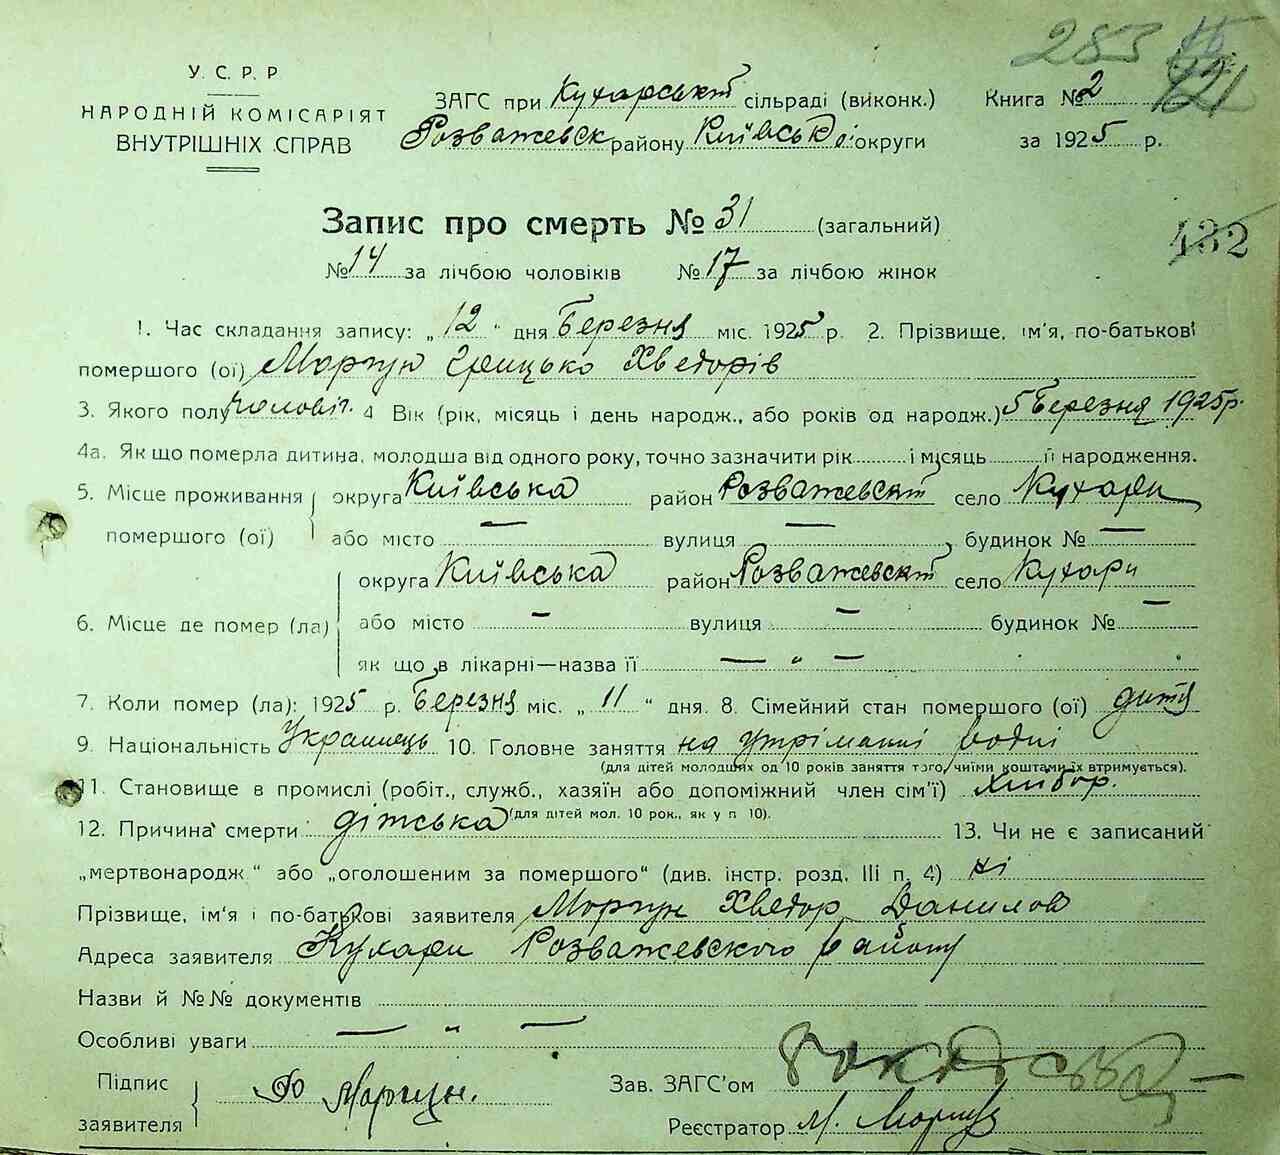 283
121
У. С. Р. Р
НАРОДНІЙ КОМІСАРІЯТ
ВНУТРІШНІХ СПРАВ
ЗАГС при Кухарськ сільраді (виконк.) Книга № 2
Розважевск району Київської округи за 1925 р.
Запис про смерть № 31 (загальний)
432
№ 14 за лічбою чоловіків № 17 за лічбою жінок
1. Час складання запису: „ 12 " дня Березня міс. 1925 р. 2. Прізвище, ім'я, по-батькові
помершого (ої) Моргун Грицько Хведорів
3. Якого полу чоловіч. 4 Вік (рік, місяць і день народж., або років од народж.) 5 Березня 1925 р.
4а. Як що померла дитина, молодша від одного року, точно зазначити рік і місяць її народження.
5. Місце проживання округа Київська район Розважевскт село Кухари
помершого (ої) або місто — вулиця — будинок № —
округа Київська район Розважевскт село Кухари
6. Місце де помер (ла) або місто — вулиця — будинок № —
як що в лікарні—назва її — „ —
7. Коли помер (ла): 1925 р. Березня міс. „ 11 " дня. 8. Сімейний стан помершого (ої) дитя
9. Національність Украинець 10. Головне заняття на утріманні водні
(для дітей молодших од 10 років заняття того, чиїми коштами їх втримується).
11. Становище в промислі (робіт., служб., хазяїн або допоміжний член сім'ї) хлібор.
(для дітей мол. 10 рок., як у п 10).
12. Причина смерти дітська 13. Чи не є записаний
„мертвонародж " або „оголошеним за помершого" (див. інстр. розд. III п. 4) ні
Прізвище, ім'я і по-батькові заявителя Моргун Хведор Данилов
Адреса заявителя Кухари Розважевского району
Назви й №№ документів
Особливі уваги — „ —
Підпис заявителя Моргун. Зав. ЗАГС'ом
Реєстратор М. Моргун